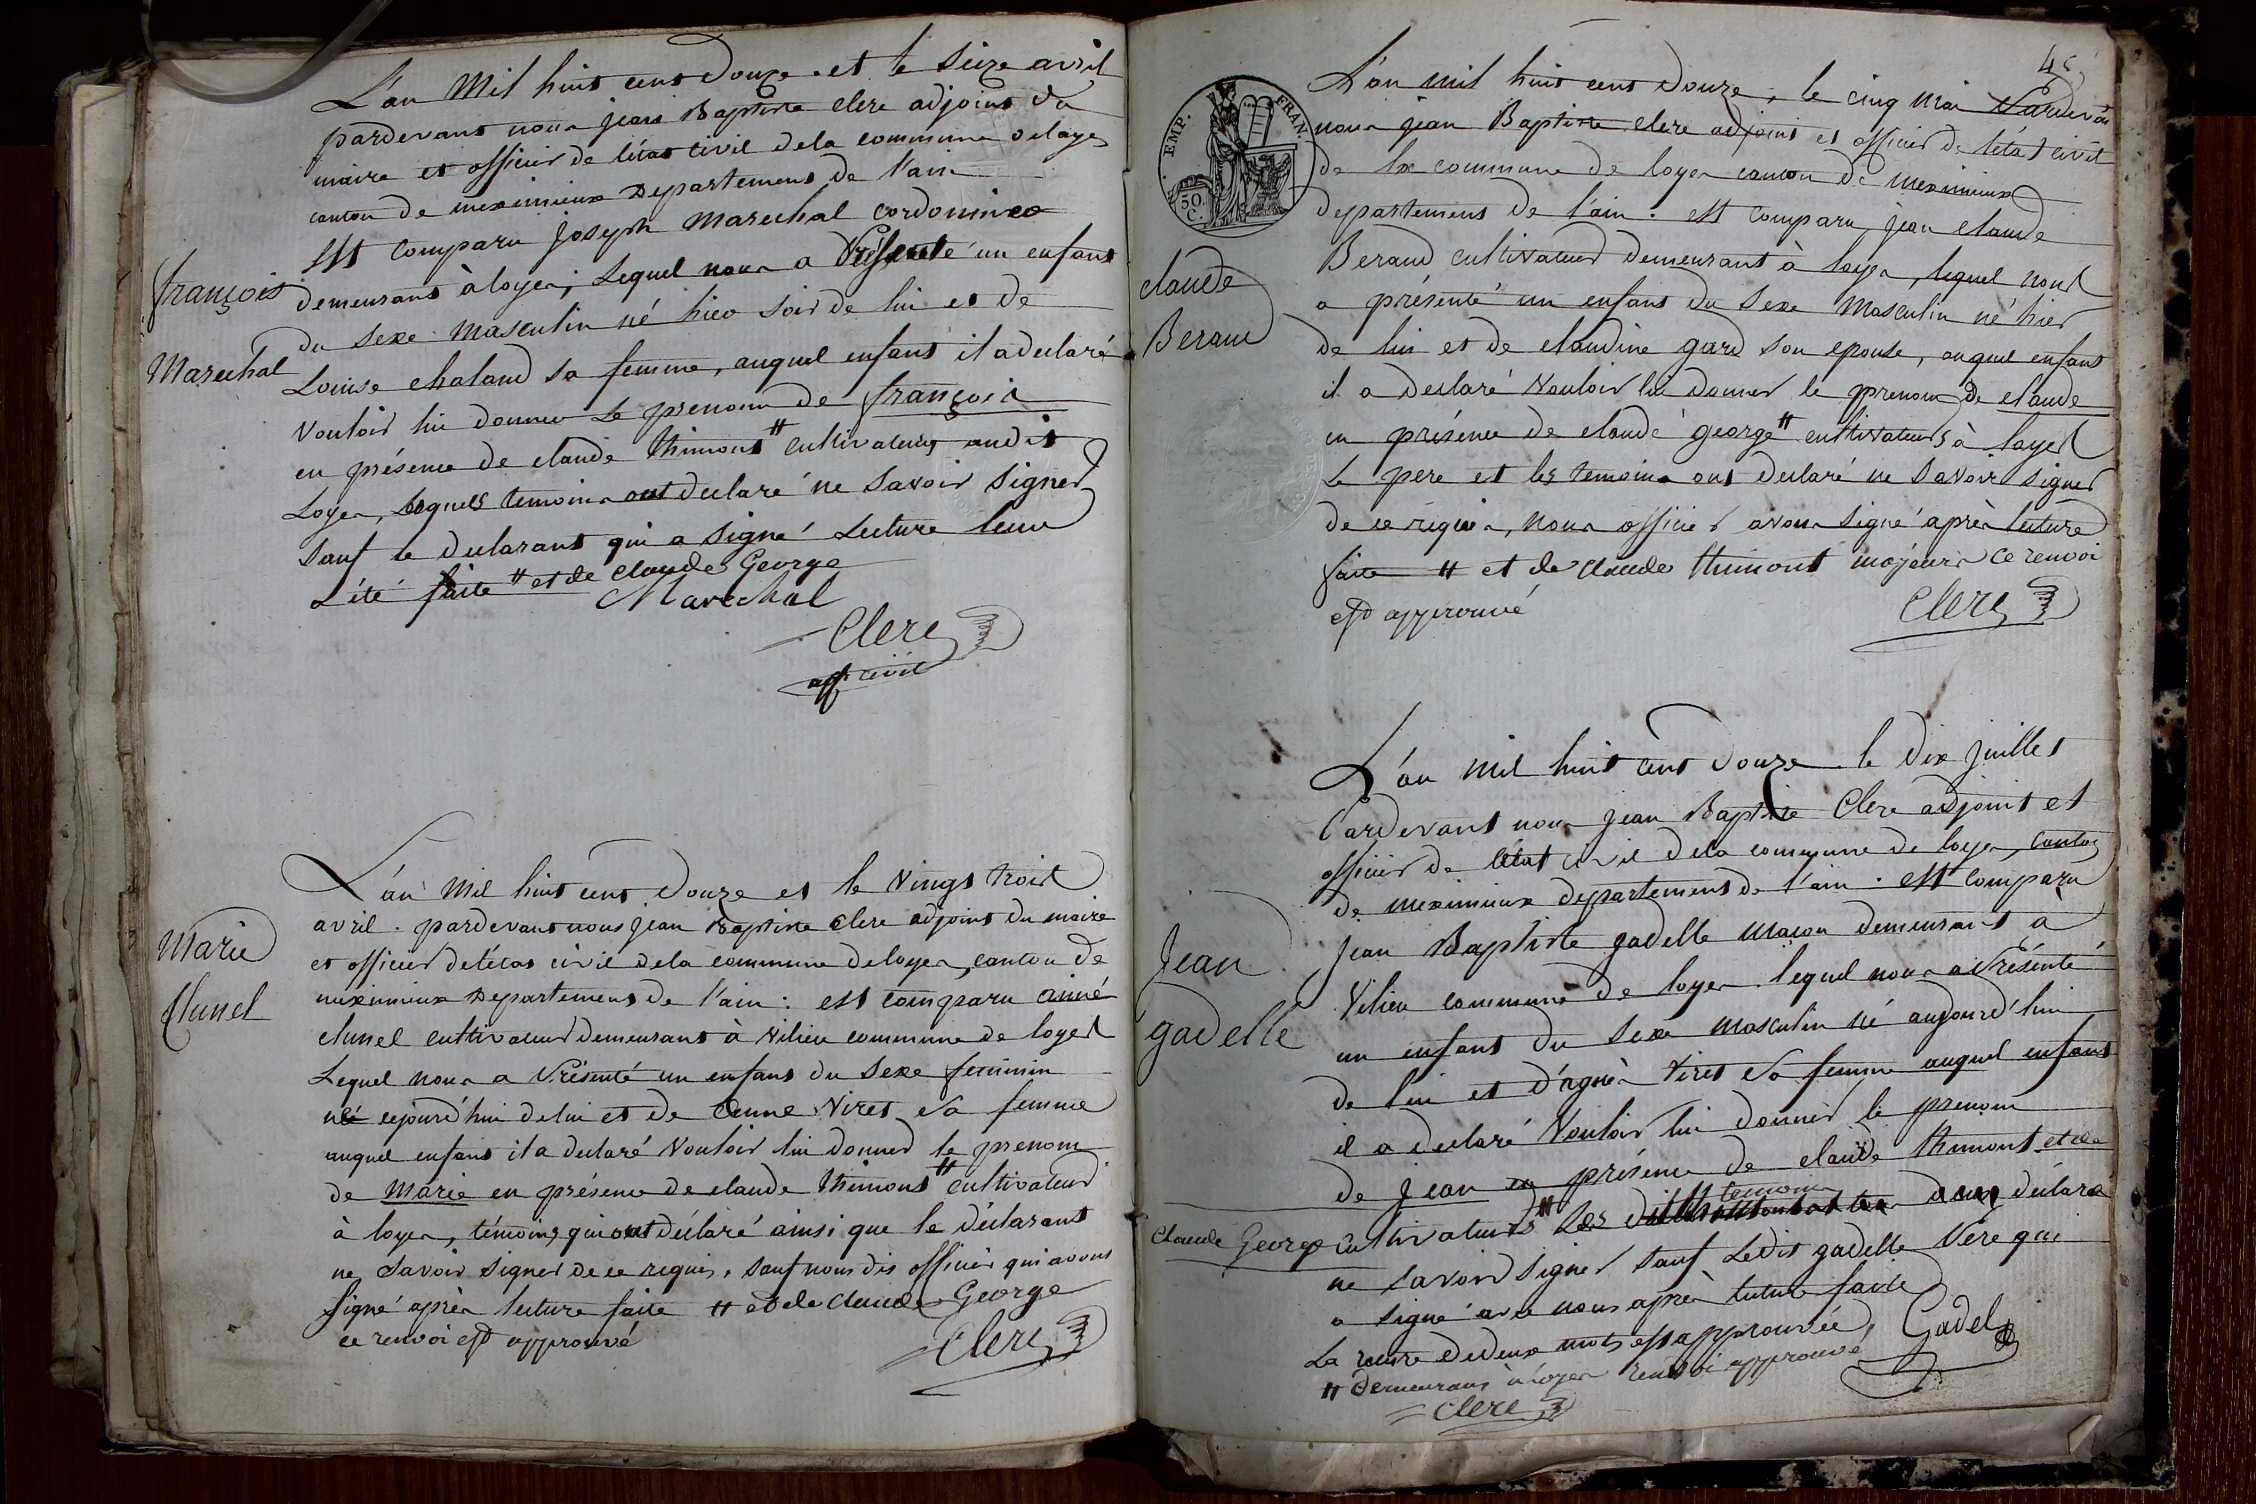 L'an Mil huit cent Douze et le Seize avril
pardevant nous jean Baptiste Clerc adjoint du
maire et officier de l'état civil de la commune de loyes
canton de meximieux Departement de l'ain
Est Comparu joseph Marechal Cordonnier
françois
demeurant à loyes, Lequel nous a Présenté un enfant
du Sexe Masculin né hier Soir de lui et de
Marechal
Louise Chaland Sa femme, auquel enfant il a declaré
vouloir lui donner Le prenom de françois
en présence de claude Thimont # cultivateurs audit
Loyes, Lesquels temoins ont declaré ne Savoir Signer
Sauf le declarant qui a Signé Lecture leur
a été faite # et de Claude George
Marechal
Clerc
off. civil
L'an Mil huit cent Douze et le Vingt trois
avril. pardevant nous jean Baptiste Clerc adjoint du maire
Marie
et officier de l'état civil de la commune de loyes, canton de
meximieux Departement de l'ain : est comparu aimé
Clunel
clunel cultivateur demeurant à Vilieu commune de loyes
Lequel nous a Présenté un enfant du Sexe feminin
né cejourd'hui de lui et de Anne Viret Sa femme
auquel enfant il a declaré Vouloir lui donner le prenom
de Marie en présence de claude Thimont # cultivateur
à loyes, témoins qui ont déclaré ainsi que le déclarant
ne Savoir Signer de ce requis, Sauf nous dit officier qui avons
Signé après lecture faite # et de claude George
ce renvoi est approuvé
Clerc
EMP. FRAN.
50 C.
L'an mil huit cent Douze, le cinq Mai Pardevant
nous jean Baptiste Clerc adjoint et officier de l'état civil
de la commune de loyes canton de meximieux
departement de l'ain. est comparu jean claude
claude
Beraud cultivateur demeurant à loyes, lequel nous
a présenté un enfant du Sexe Masculin né hier
Beraud
de lui et de claudine gard son epouse, auquel enfant
il a declaré Vouloir lui donner le prenom de claude
en présence de claude george # cultivateurs à loyes
Le pere et les temoins ont declaré ne Savoir Signer
de ce requis, nous officier avons Signé après lecture
faite # et de claude thimont majeurs ce renvoi
est approuvé
Clerc
L'an Mil huit cent Douze le Dix juillet
Pardevant nous Jean Baptiste Clerc adjoint et
officier de l'état civil de la commune de loyes, canton
de meximieux departement de l'ain. est comparu
Jean
Jean Baptiste gadelle Macon demeurant à
Vilieu commune de loyes. lequel nous a Présenté
gadelle
un enfant du Sexe Masculin né aujourd'hui
de lui et d'agnès Viret Sa femme auquel enfant
il a declaré Vouloir lui donner le prenom
de Jean en présence de claude thimont et de
Claude George cultivateurs # Les dits temoins declaré
ne savoir Signer Sauf Ledit gadelle Père qui
a Signé avec nous après lecture faite
La rature de deux mots est approuvée,
Gadel
# demeurant à loyes renvoi approuvé
Clerc